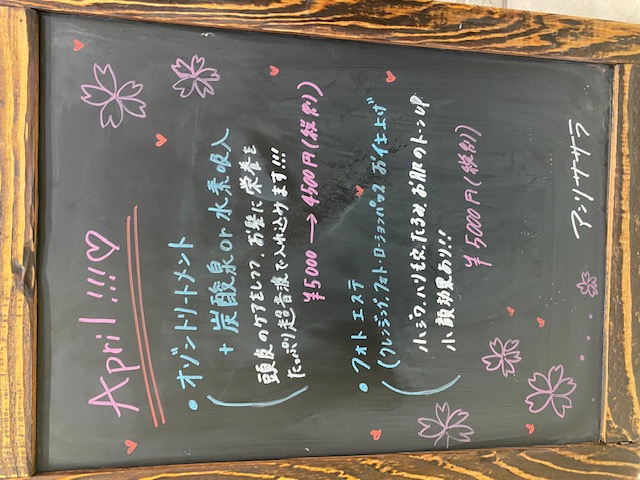 April!!!♡
• オゾントリートメント
+ 炭酸泉or水素吸入
頭皮のケアをしつつ、お髪に栄養を
たっぷり超音波で入れ込みます!!!
¥5000 → 4500円(税別)
• フォトエステ
(クレンジング、フォト、ローションパック、お仕上げ
小ジワ、ハリ、毛穴、たるみ、お肌のトーンup
小顔効果あり!!
¥5000円(税別)
アンリササラ